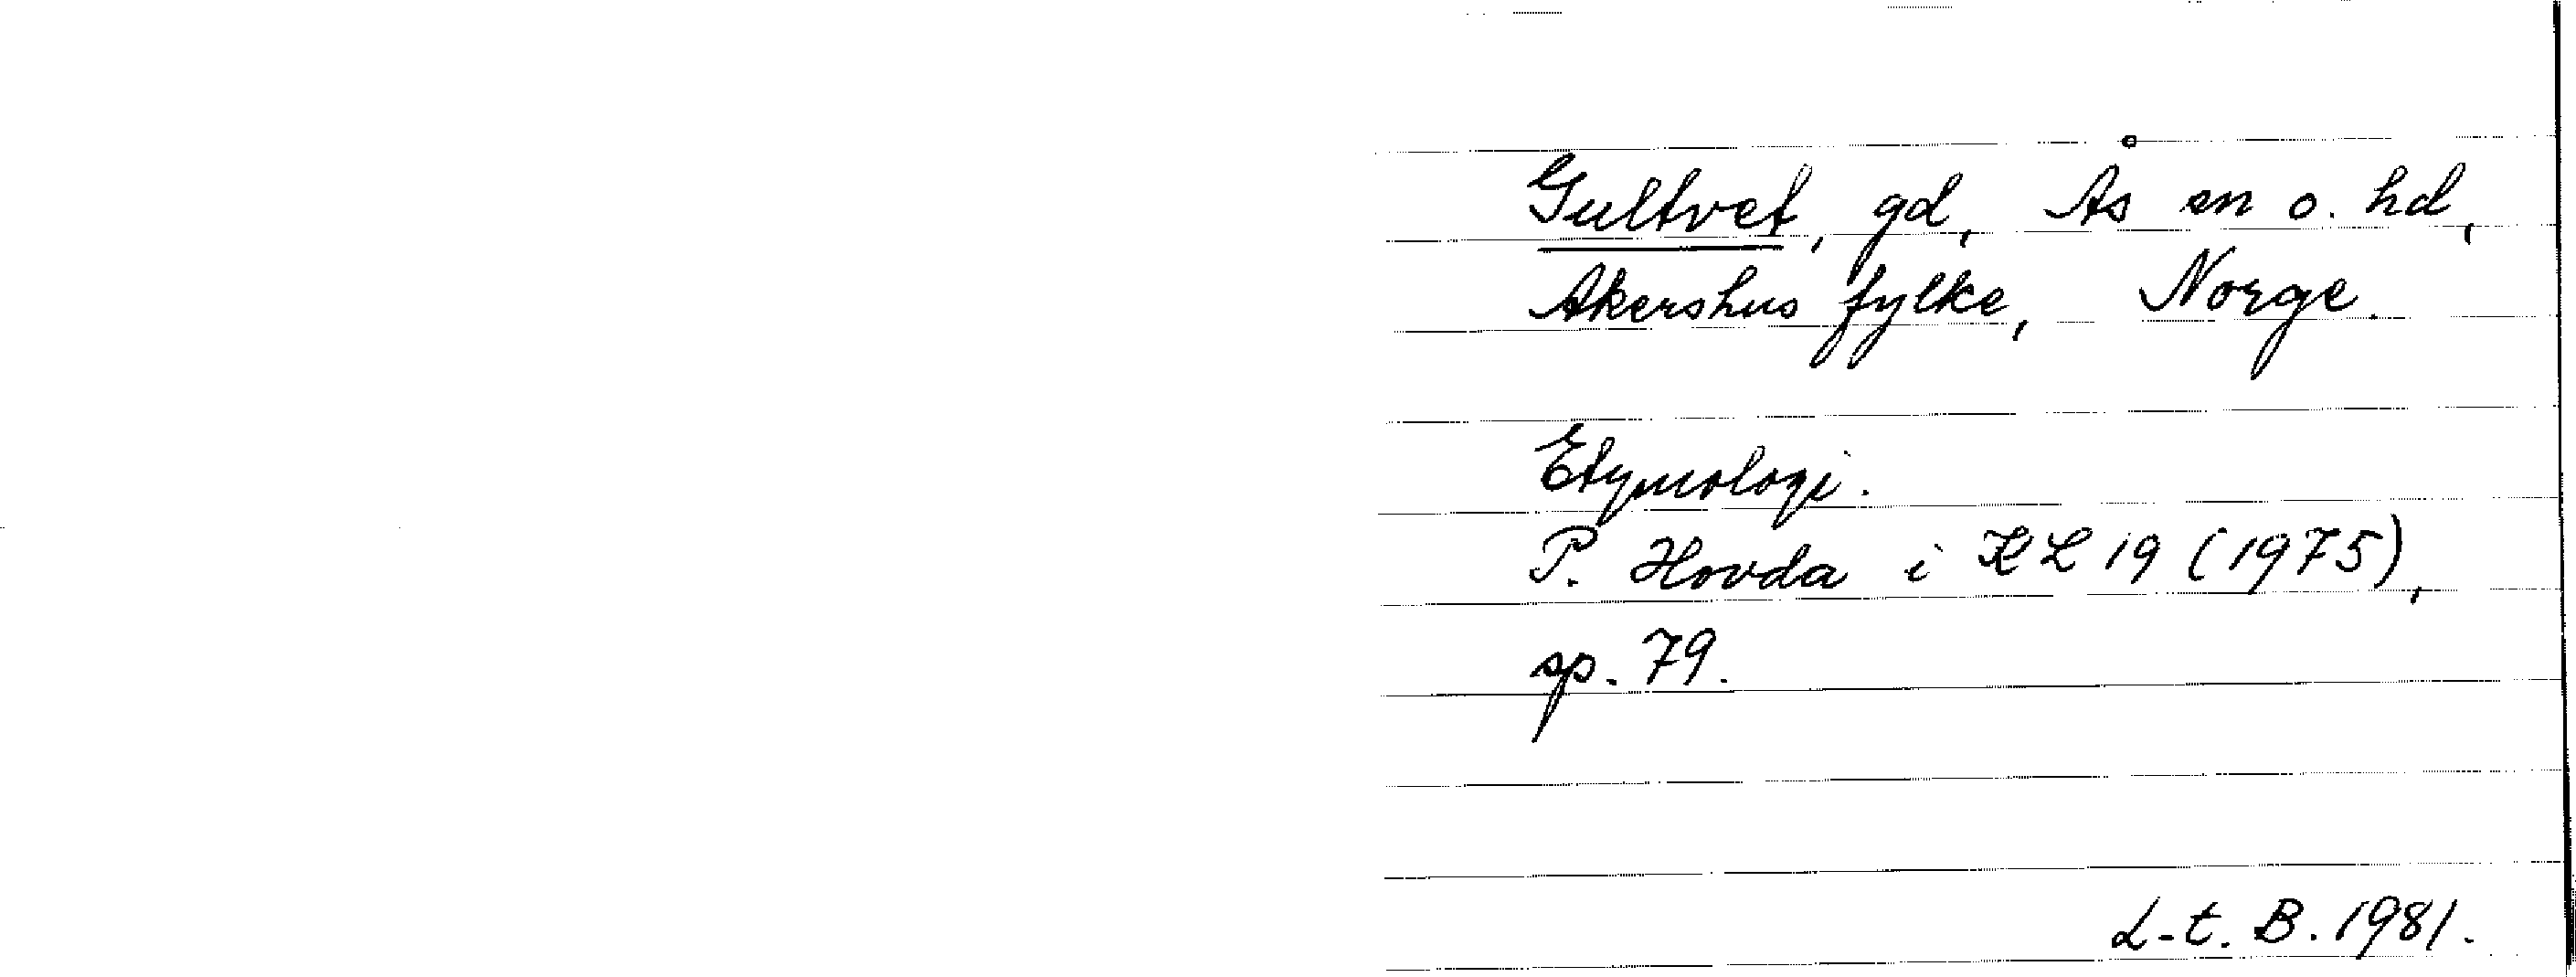 Gultvet, gd, Ås sn o. hd,
Akershus fylke, Norge.
Etymologi.
P. Hovda i KL 19 (1975),
sp. 79.
L-t. B. 1981.